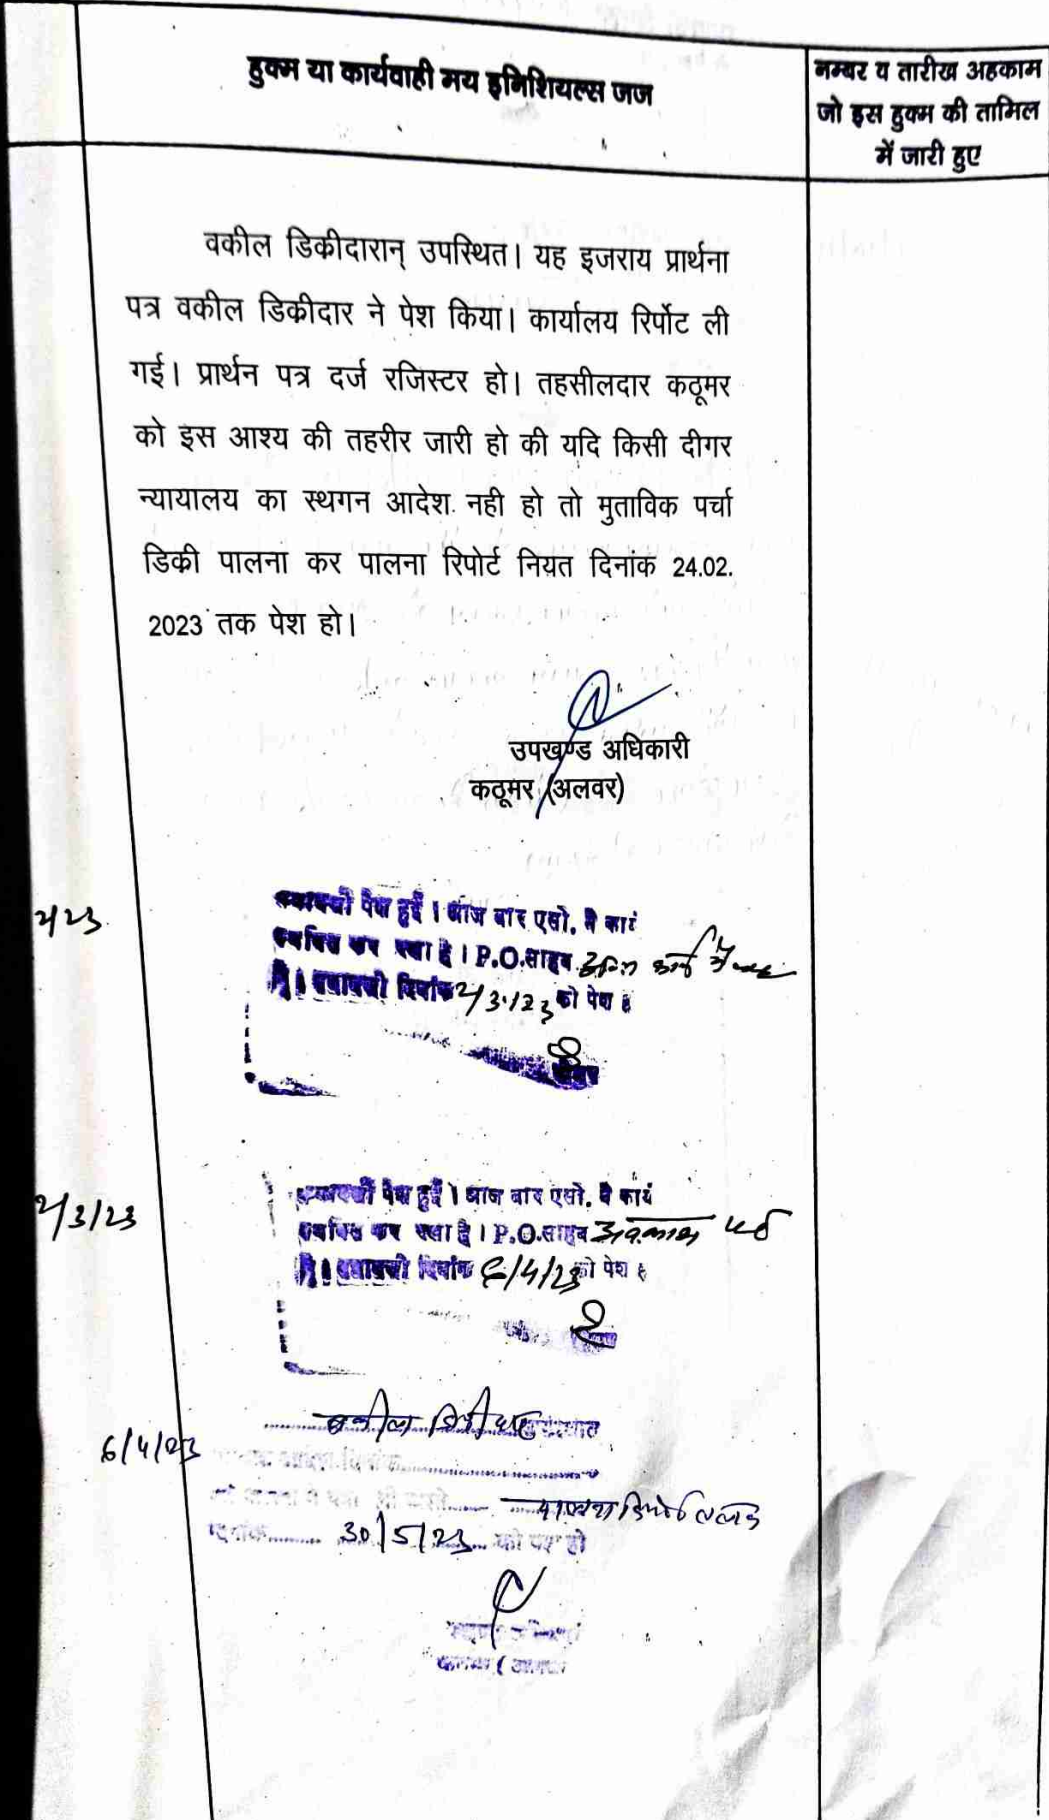 हुक्म या कार्यवाही मय इनिशियल्स जज
नम्बर व तारीख अहकाम
जो इस हुक्म की तामिल
में जारी हुए
वकील डिकीदारान् उपस्थित। यह इजराय प्रार्थना
पत्र वकील डिकीदार ने पेश किया। कार्यालय रिर्पोट ली
गई। प्रार्थन पत्र दर्ज रजिस्टर हो। तहसीलदार कठूमर
को इस आश्य की तहरीर जारी हो की यदि किसी दीगर
न्यायालय का स्थगन आदेश नही हो तो मुताविक पर्चा
डिकी पालना कर पालना रिपोर्ट नियत दिनांक 24.02.
2023 तक पेश हो।
उपखण्ड अधिकारी
कठूमर (अलवर)
पेश हुई। आज बार एसो. ने कार्य
P.O.साहब
दिनांक 2/3/23 को पेश
2/3/23
पेश हुई। आज बार एसो. ने कार्य
P.O.साहब अवकाश पर्व
दिनांक 6/4/23 को पेश
6/4/23
वकील
दिनांक 30/5/23 को पेश हो